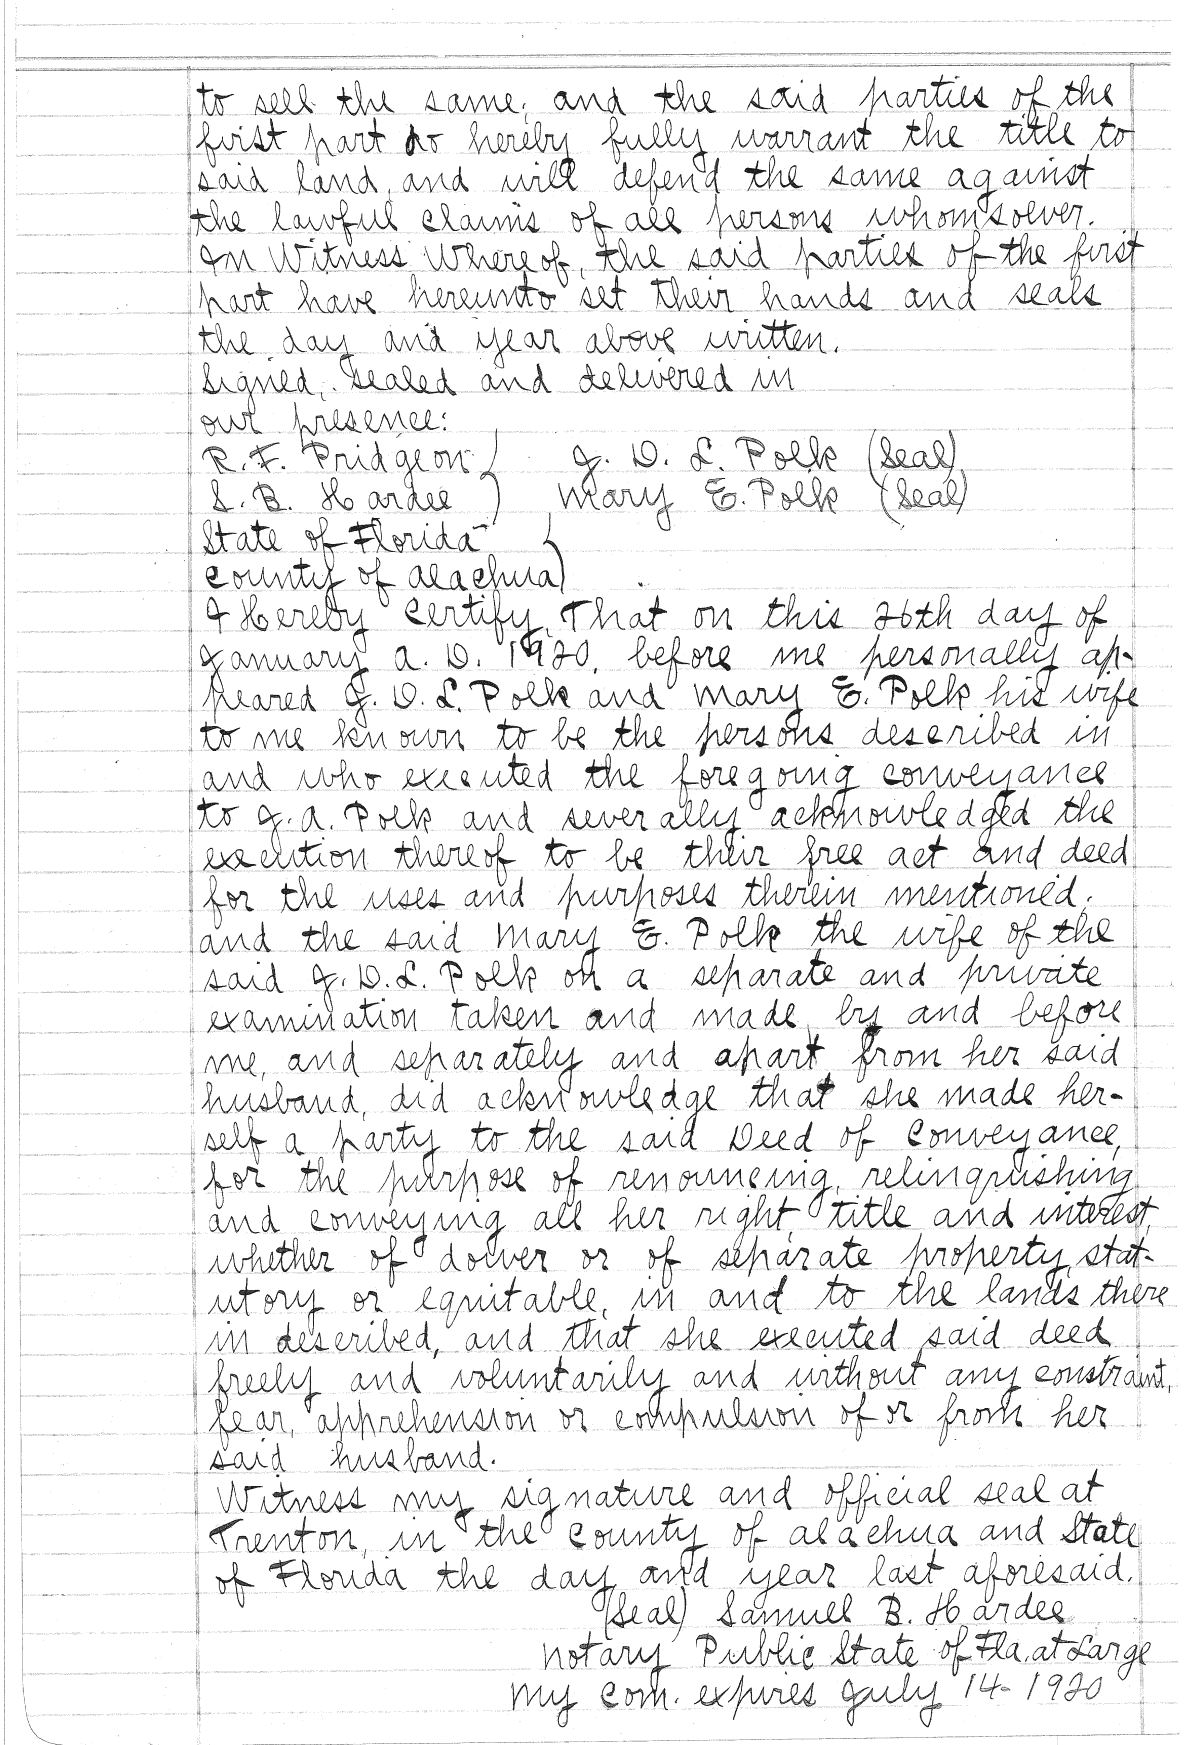 to sell the same; and the said parties of the
first part do hereby fully warrant the title to
said land, and will defend the same against
the lawful claims of all persons whomsoever.
In Witness Whereof, the said parties of the first
part have hereunto set their hands and seals
the day and year above written.
Signed, sealed and delivered in
our presence:
R. F. Pridgeon ) J. D. L. Polk (Seal)
S. B. Hardee ) Mary E. Polk (Seal)
State of Florida )
County of Alachua )
I Hereby Certify, That on this 26th day of
January A. D. 1920, before me personally ap-
peared J. D. L. Polk and Mary E. Polk his wife
to me known to be the persons described in
and who executed the foregoing conveyance
to J. A. Polk and severally acknowledged the
execution thereof to be their free act and deed
for the uses and purposes therein mentioned;
and the said Mary E. Polk the wife of the
said J. D. L. Polk on a separate and private
examination taken and made by and before
me, and separately and apart from her said
husband, did acknowledge that she made her-
self a party to the said Deed of Conveyance,
for the purpose of renouncing, relinquishing
and conveying all her right, title and interest,
whether of dower or of separate property, stat-
utory or equitable, in and to the lands there
in described, and that she executed said deed
freely and voluntarily and without any constraint,
fear, apprehension or compulsion of or from her
said husband.
Witness my signature and official seal at
Trenton, in the County of Alachua and State
of Florida the day and year last aforesaid.
(Seal) Samuel B. Hardee
Notary Public State of Fla. at Large
My Com. expires July 14- 1920